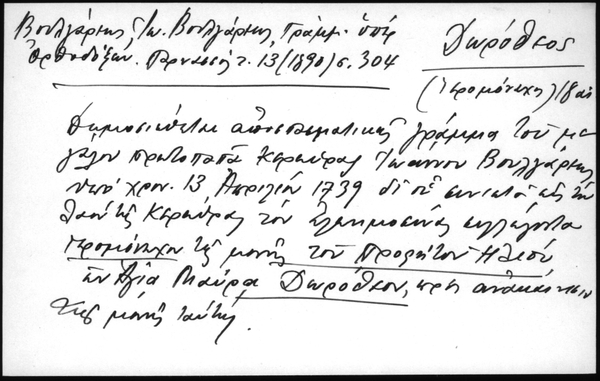 Βουλγάρεως, Ἰω. Βουλγάρεως, Γράμμ. ὑπὲρ
Ὀρθοδόξων. Παρνασσός τ. 13 (1890) σ. 304
Δωρόθεος
(Ἱερομόναχος) 18 αἰ
Δημοσιεύεται ἀποσπασματικῶς γράμμα τοῦ με
γάλου πρωτοπαπᾶ Κερκύρας Ἰωάννου Βουλγάρεως
ὑπὸ χρον. 13 Ἀπριλίου 1739 δι' οὗ συνιστᾶ εἰς τὴν
λαόν τῆς Κερκύρας τὸν ἐλεημοσύνας συλλέγοντα
ἱερομόναχον τῆς μονῆς τοῦ Προφήτου Ἠλιού
ἐν Ἁγίᾳ Μαύρᾳ Δωρόθεον, πρὸς ἀνακαίνισιν
τῆς μονῆς ταύτης.